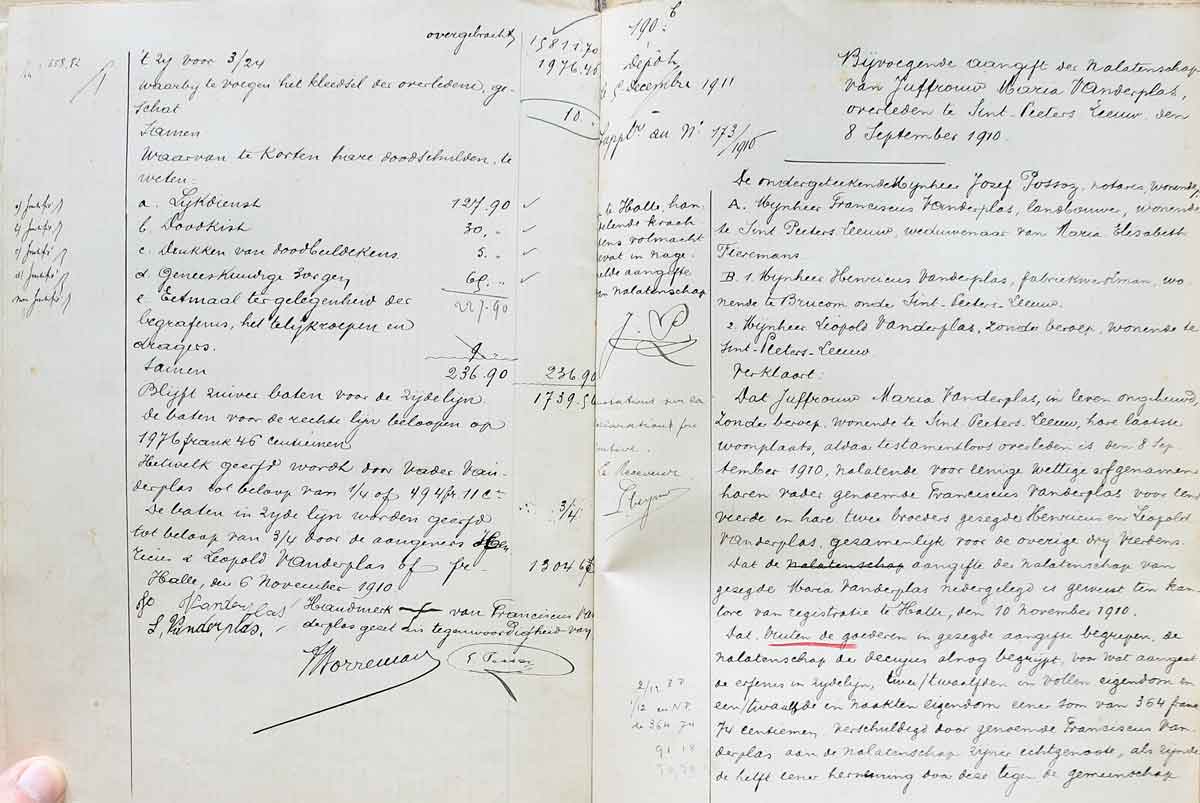 overgebracht
1581.70
't zy voor 3/24
1976.46
waarby te voegen het kleedsel der overledene, ge-
schat
10. "
Samen
Waarvan te korten hare doodschulden, te
weten:
a. Lykdienst 127.90
b. Doodkist 30. "
c. Drukken van doodbeeldekens 5. "
d. Geneeskundige zorgen 65. "
227.90
e Eetmaal ter gelegenheid der
begrafenis, het lelijkroepen en
dragers. 9. "
Samen 236.90 236.90
Blijft zuiver baten voor de zijdelijn 1739.56
De baten voor de rechte lijn beloopen op
1976 frank 46 centiemen
Hetwelk geerfd wordt door Vader Van-
derplas tot beloop van 1/4 of 494 fr 11 Cn
De baten in zyde lyn worden geerfd 3/4
tot beloop van 3/4 door de aangevers Hen
ricus & Leopold Vanderplas of fr.
Halle, den 6 November 1910
Vanderplas
Handmerk + van Franciscus Va
L. Vanderplas.
derplas gezet in tegenwoordigheid van
190 6
dépot
5 Decembre 1911
Supplre au No 173/1910
te Halle, han-
delende krach
tens volmacht
aangifte
nalatenschap
Le Receveur
Bijvoegende aangift der nalatenschap
van Juffrouw Maria Vanderplas,
overleden te Sint-Peeters Leeuw den
8 September 1910.
De ondergeteekende Mynheer Josef Possoz, notaris, wonende,
A. Mynheer Franciscus Vanderplas, landbouwer, wonende
te Sint Peeters Leeuw, weduwenaar van Maria Elisabeth
Fieremans
B. 1. Mynheer Henricus Vanderplas, fabriekwerkman, wo-
nende te Brucom onder Sint-Peeters-Leeuw.
2. Mynheer Leopold Vanderplas, zonder beroep, wonende te
Sint-Peeters-Leeuw
Verklaart:
Dat Juffrouw Maria Vanderplas, in leven ongehuwd,
zonder beroep, wonende te Sint Peeters Leeuw, hare laatste
woonplaats, aldaar testamentloos overleden is den 8 Sep-
tember 1910, nalatende voor eenige wettige erfgenamen
haren vader genoemde Franciscus Vanderplas voor een
vierde en hare twee broeders gezegde Henricus en Leopold
Vanderplas, gezamenlijk voor de overige dry vierden.
Dat de nalatenschap aangifte der nalatenschap van
gezegde Maria Vanderplas nedergelegd is geweest ten kan-
tore van registratie te Halle, den 10 November 1910.
Dat, buiten de goederen in gezegde aangifte begrepen, de
nalatenschap der decujus alnog begrijpt, voor wat aangaat
de erfenis in zydelyn, twee/twaalfden in vollen eigendom en
een/twaalfde in naakten eigendom eener som van 364 franc
74 centiemen, verschuldigd door genoemde Franciscus Van-
derplas aan de nalatenschap zyner echtgenoote, als zynde
de helft eener herneming door deze tegen de gemeenschap
2/12
1/12 en N.P.
364 74
91 18